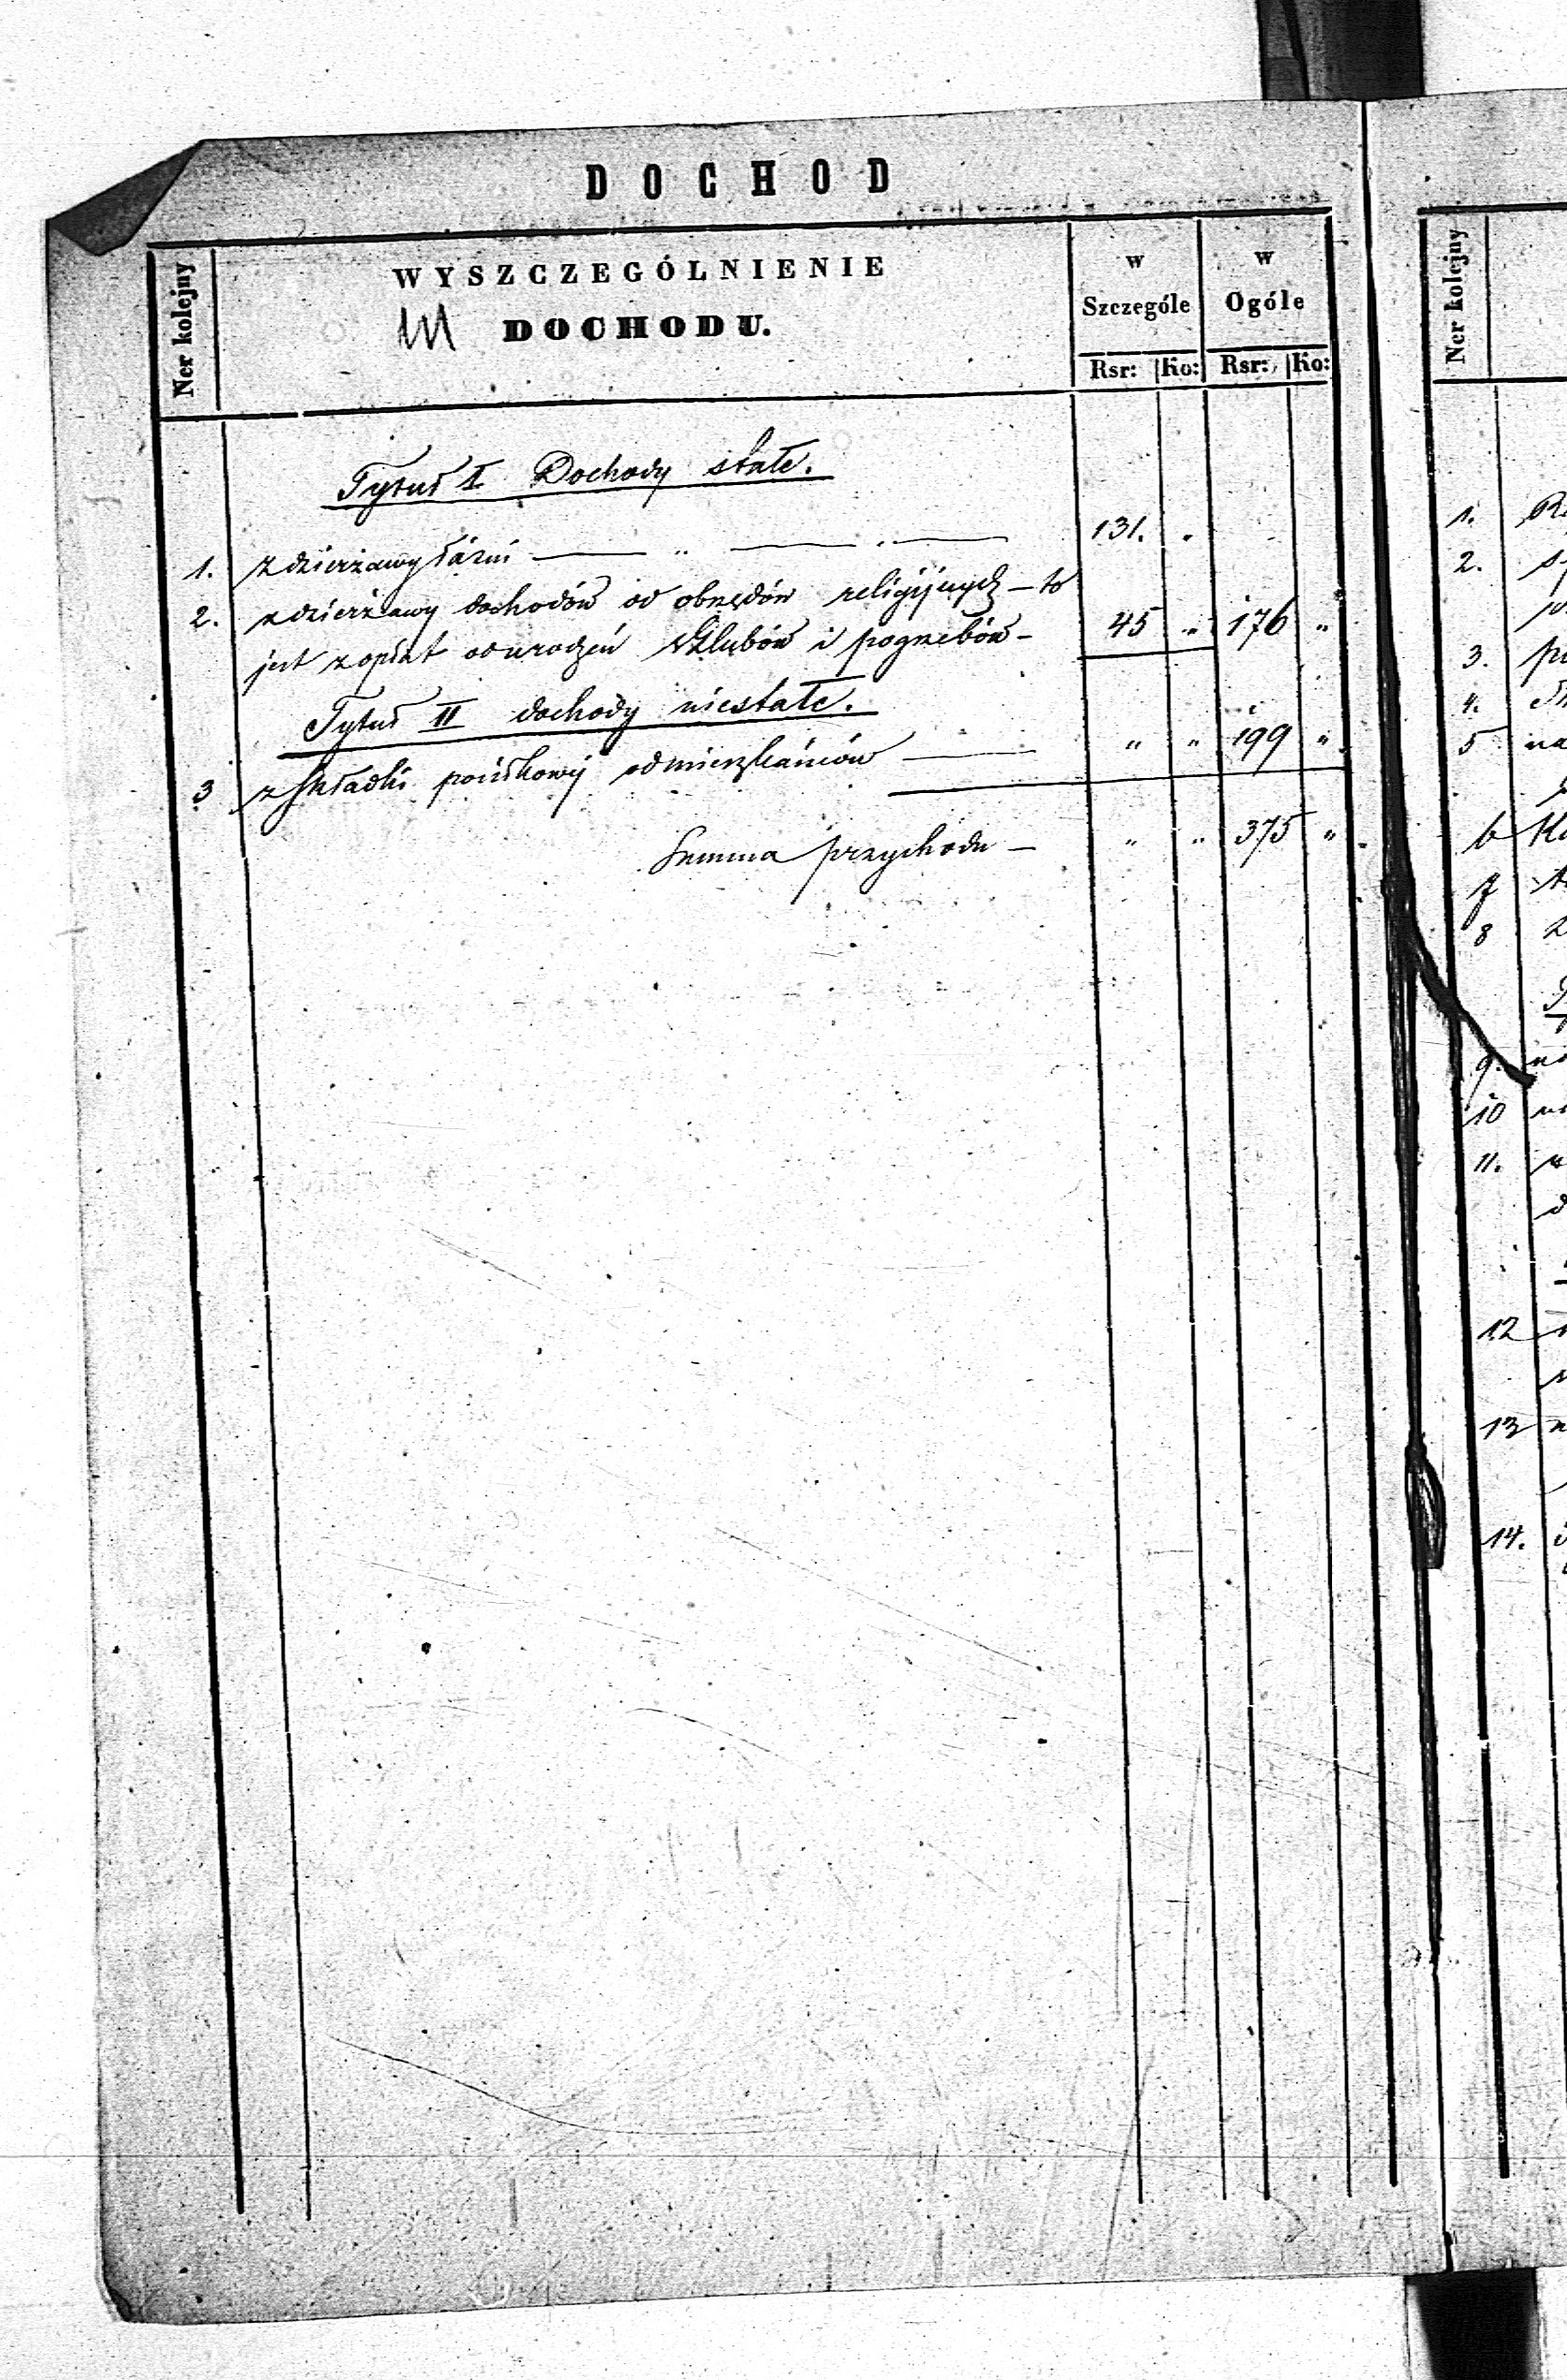 DOCHOD
Ner kolejny
WYSZCZEGÓLNIENIE
DOCHODU.
w Szczególe
w Ogóle
Rsr: Ko: Rsr: Ko:
Tytuł I Dochody stałe.
1. z dzierżawy łaźni — „ — „ — 131. „
2. z dzierżawy dochodów od obrzędów religijnych — to
jest z opłat od urodzeń Szlubów i pogrzebów — 45 „ 176 „
Tytuł II dochody niestałe.
3 z składki od mieszkańców — „ „ 199 „
Summa przychodu — „ „ 375 „
Ner kolejny
1.
2.
3.
4.
5
6
7
8
9.
10
11.
12
13
14.